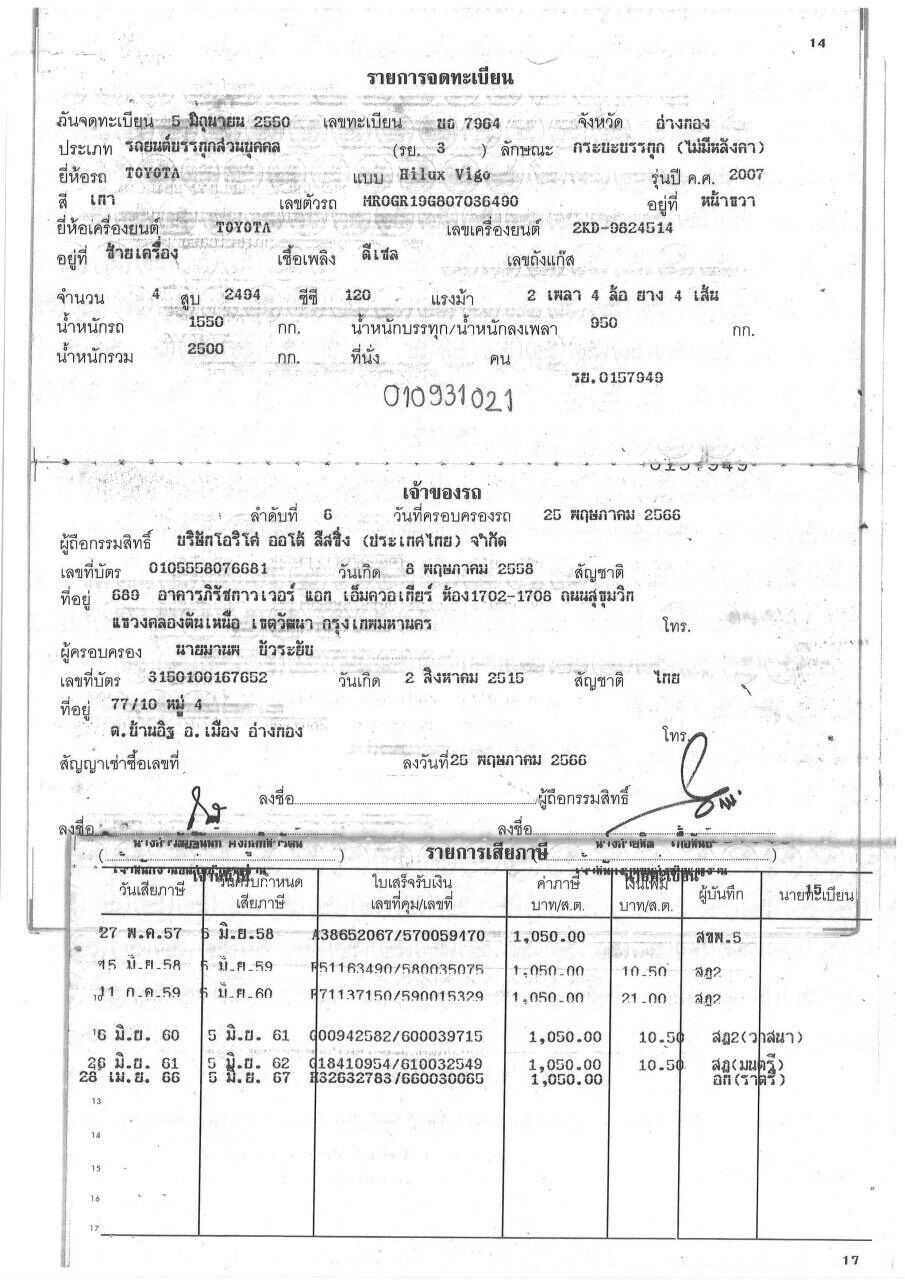 14
รายการจดทะเบียน
วันจดทะเบียน 5 มิถุนายน 2550 เลขทะเบียน บธ 7964 จังหวัด อ่างทอง
ประเภท รถยนต์บรรทุกส่วนบุคคล (รย. 3 ) ลักษณะ กระบะบรรทุก (ไม่มีหลังคา)
ยี่ห้อรถ TOYOTA แบบ Hilux Vigo รุ่นปี ค.ศ. 2007
สี เทา เลขตัวรถ MR0GR19G807036490 อยู่ที่ หน้าขวา
ยี่ห้อเครื่องยนต์ TOYOTA เลขเครื่องยนต์ 2KD-9824514
อยู่ที่ ซ้ายเครื่อง เชื้อเพลิง ดีเซล เลขถังแก๊ส
จำนวน 4 สูบ 2494 ซีซี 120 แรงม้า 2 เพลา 4 ล้อ ยาง 4 เส้น
น้ำหนักรถ 1550 กก. น้ำหนักบรรทุก/น้ำหนักลงเพลา 950 กก.
น้ำหนักรวม 2500 กก. ที่นั่ง คน
รย.0157949
010931021
0157949
เจ้าของรถ
ลำดับที่ 6 วันที่ครอบครองรถ 25 พฤษภาคม 2566
ผู้ถือกรรมสิทธิ์ บริษัทโอริโค่ ออโต้ ลีสซิ่ง (ประเทศไทย) จำกัด
เลขที่บัตร 0105558076681 วันเกิด 8 พฤษภาคม 2558 สัญชาติ
ที่อยู่ 689 อาคารภิรัชทาวเวอร์ แอท เอ็มควอเทียร์ ห้อง1702-1708 ถนนสุขุมวิท
แขวงคลองตันเหนือ เขตวัฒนา กรุงเทพมหานคร โทร.
ผู้ครอบครอง นายมานพ บัวระยับ
เลขที่บัตร 3150100167652 วันเกิด 2 สิงหาคม 2515 สัญชาติ ไทย
ที่อยู่ 77/10 หมู่ 4
ต.บ้านอิฐ อ.เมือง อ่างทอง โทร.
สัญญาเช่าซื้อเลขที่ ลงวันที่ 25 พฤษภาคม 2566
ลงชื่อ ผู้ถือกรรมสิทธิ์
ลงชื่อ ลงชื่อ
รายการเสียภาษี
15
วันเสียภาษี วันครบกำหนดเสียภาษี ใบเสร็จรับเงิน เลขที่คุม/เลขที่ ค่าภาษี บาท/ส.ต. เงินเพิ่ม บาท/ส.ต. ผู้บันทึก นายทะเบียน
27 พ.ค.57 5 มิ.ย.58 A38652067/570059470 1,050.00 สขพ.5
15 มิ.ย.58 5 มิ.ย.59 F51163490/580035075 1,050.00 10.50 สฎ2
10 11 ก.ค.59 5 มิ.ย.60 F71137150/590015329 1,050.00 21.00 สฎ2
6 มิ.ย. 60 5 มิ.ย. 61 G00942582/600039715 1,050.00 10.50 สฎ2(วาสนา)
26 มิ.ย. 61 5 มิ.ย. 62 G18410954/610032549 1,050.00 10.50 สฎ(มนตรี)
28 เม.ย. 66 5 มิ.ย. 67 H32632783/660030065 1,050.00 อท(ราตรี)
13
14
15
16
17
17